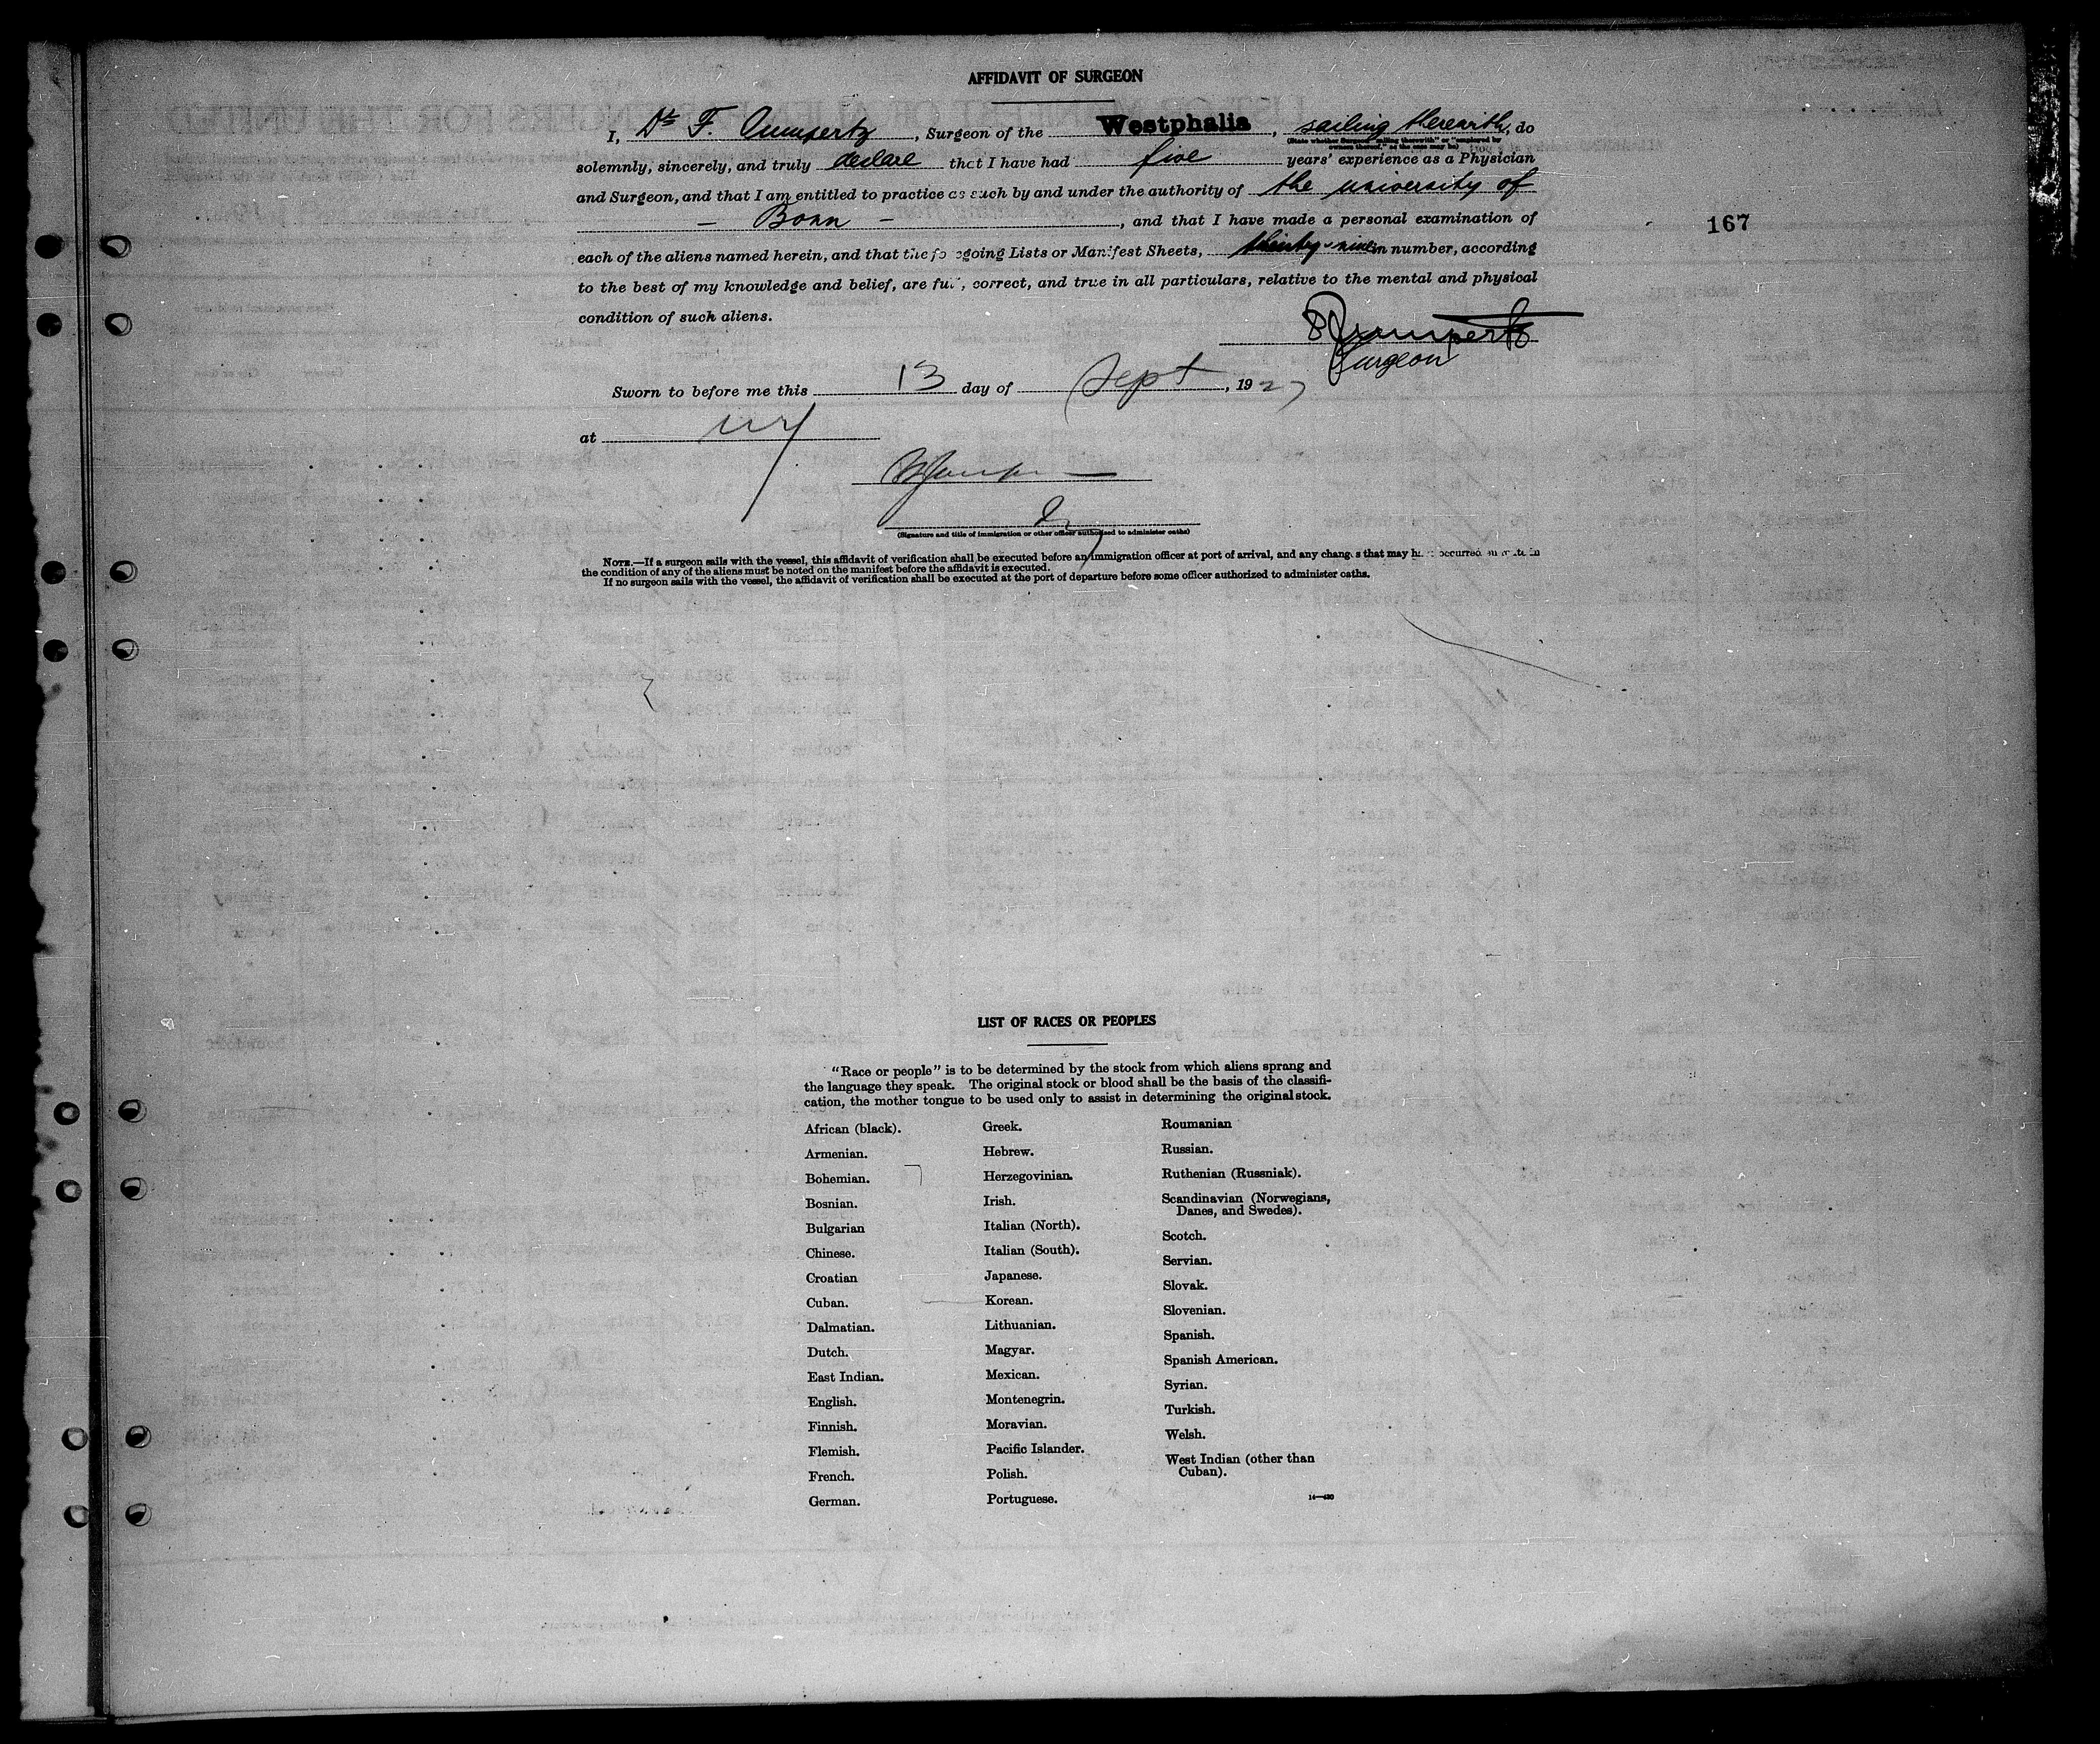 AFFIDAVIT OF SURGEON
I, Dr F. , Surgeon of the Westphalia, sailing therewith, do
(State whether Surgeon "sailing therewith" or "employed by
owners thereof," as the case may be)
solemnly, sincerely, and truly declare that I have had five years' experience as a Physician
and Surgeon, and that I am entitled to practice as such by and under the authority of the university of
- Bonn -, and that I have made a personal examination of
167
each of the aliens named herein, and that the foregoing Lists or Manifest Sheets, thirty-nine in number, according
to the best of my knowledge and belief, are full, correct, and true in all particulars, relative to the mental and physical
condition of such aliens.
Surgeon
Sworn to before me this 13 day of Sept, 1927
at NY
(Signature and title of immigration or other officer authorized to administer oaths)
NOTE.—If a surgeon sails with the vessel, this affidavit of verification shall be executed before an immigration officer at port of arrival, and any changes that may have occurred en route in
the condition of any of the aliens must be noted on the manifest before the affidavit is executed.
If no surgeon sails with the vessel, the affidavit of verification shall be executed at the port of departure before some officer authorized to administer oaths.
LIST OF RACES OR PEOPLES
"Race or people" is to be determined by the stock from which aliens sprang and
the language they speak. The original stock or blood shall be the basis of the classifi-
cation, the mother tongue to be used only to assist in determining the original stock.
African (black).
Armenian.
Bohemian.
Bosnian.
Bulgarian
Chinese.
Croatian
Cuban.
Dalmatian.
Dutch.
East Indian.
English.
Finnish.
Flemish.
French.
German.
Greek.
Hebrew.
Herzegovinian.
Irish.
Italian (North).
Italian (South).
Japanese.
Korean.
Lithuanian.
Magyar.
Mexican.
Montenegrin.
Moravian.
Pacific Islander.
Polish.
Portuguese.
Roumanian
Russian.
Ruthenian (Russniak).
Scandinavian (Norwegians,
Danes, and Swedes).
Scotch.
Servian.
Slovak.
Slovenian.
Spanish.
Spanish American.
Syrian.
Turkish.
Welsh.
West Indian (other than
Cuban).
14—430